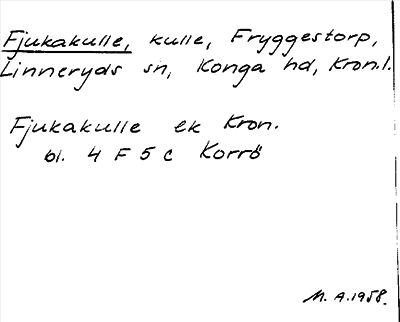 Fjukakulle, kulle, Fryggestorp,
Linneryds sn, Konga hd, Kron.l.
Fjukakulle ek Kron.
bl. 4 F 5 c Korrö
M. A. 1958.